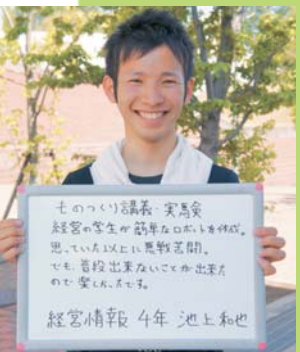 ものつくり講義・実験
経営の学生が簡単なロボットを作成。
思っていた以上に悪戦苦闘。
でも、普段出来ないことが出来た
ので楽しかったです。
経営情報 4年 池上和也